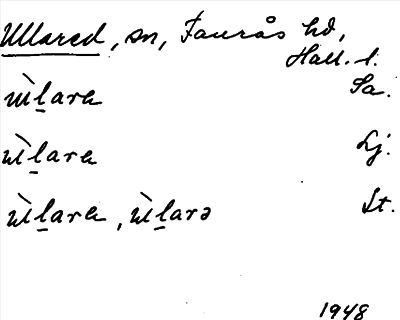 Ullared, sn, Faurås hd,
Hall. l.
ùl̠ara Sa.
ùl̠ara Lj.
ùl̠ara, ùl̠arə St.
1948